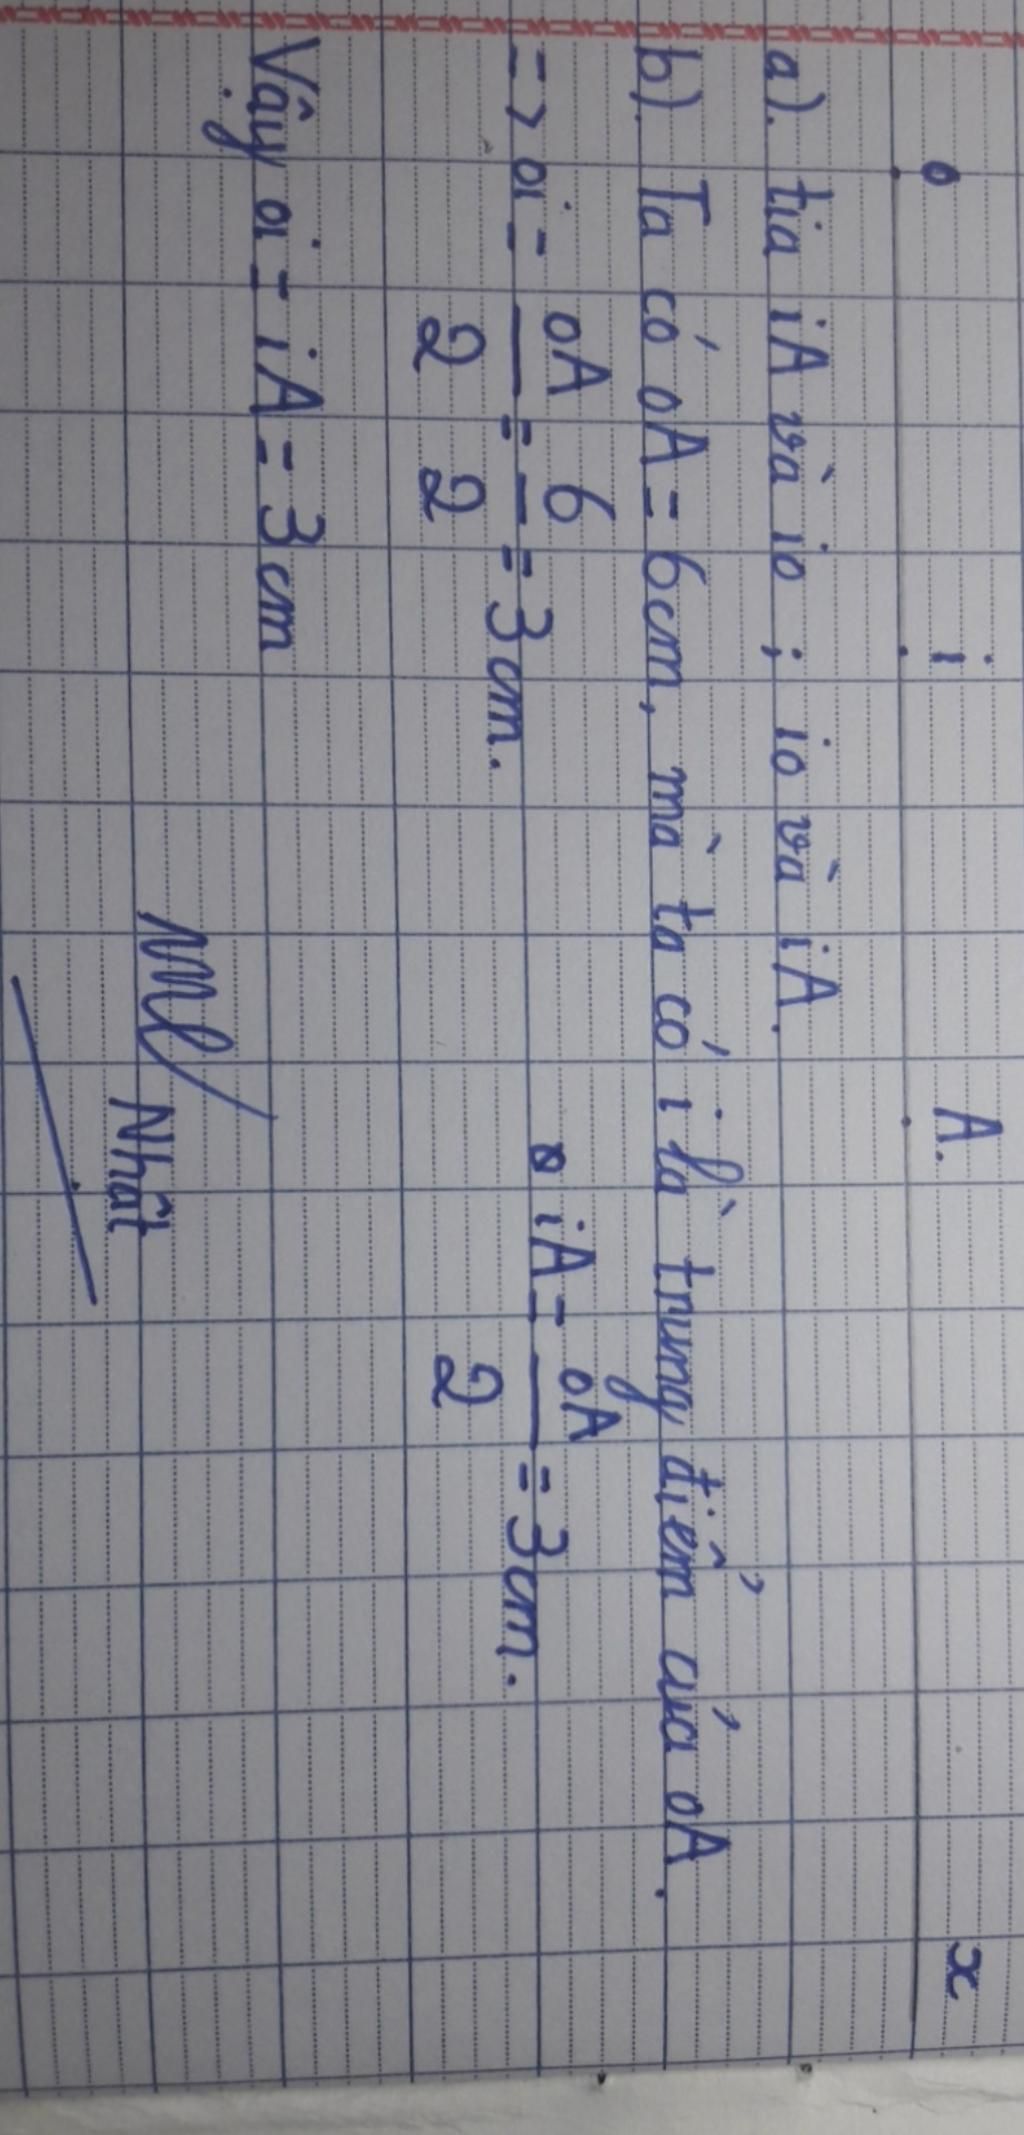 o i A. x
a). tia iA và io ; io và iA.
b). Ta có oA = 6cm, mà ta có i là trung điểm của oA.
=> oi = oA/2 = 6/2 = 3cm. iA = oA/2 = 3cm.
Vậy oi = iA = 3cm
Nhất